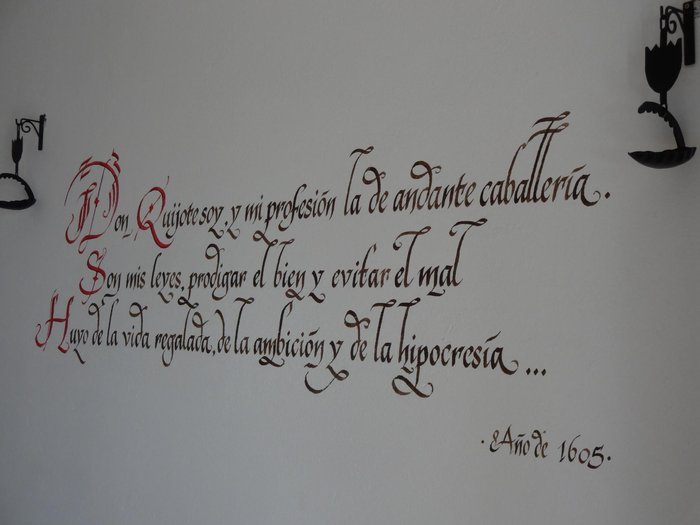 Don Quijote soy, y mi profesión la de andante caballería.
Son mis leyes, prodigar el bien y evitar el mal
Huyo de la vida regalada, de la ambición y de la hipocresía...
· Año de 1605 ·